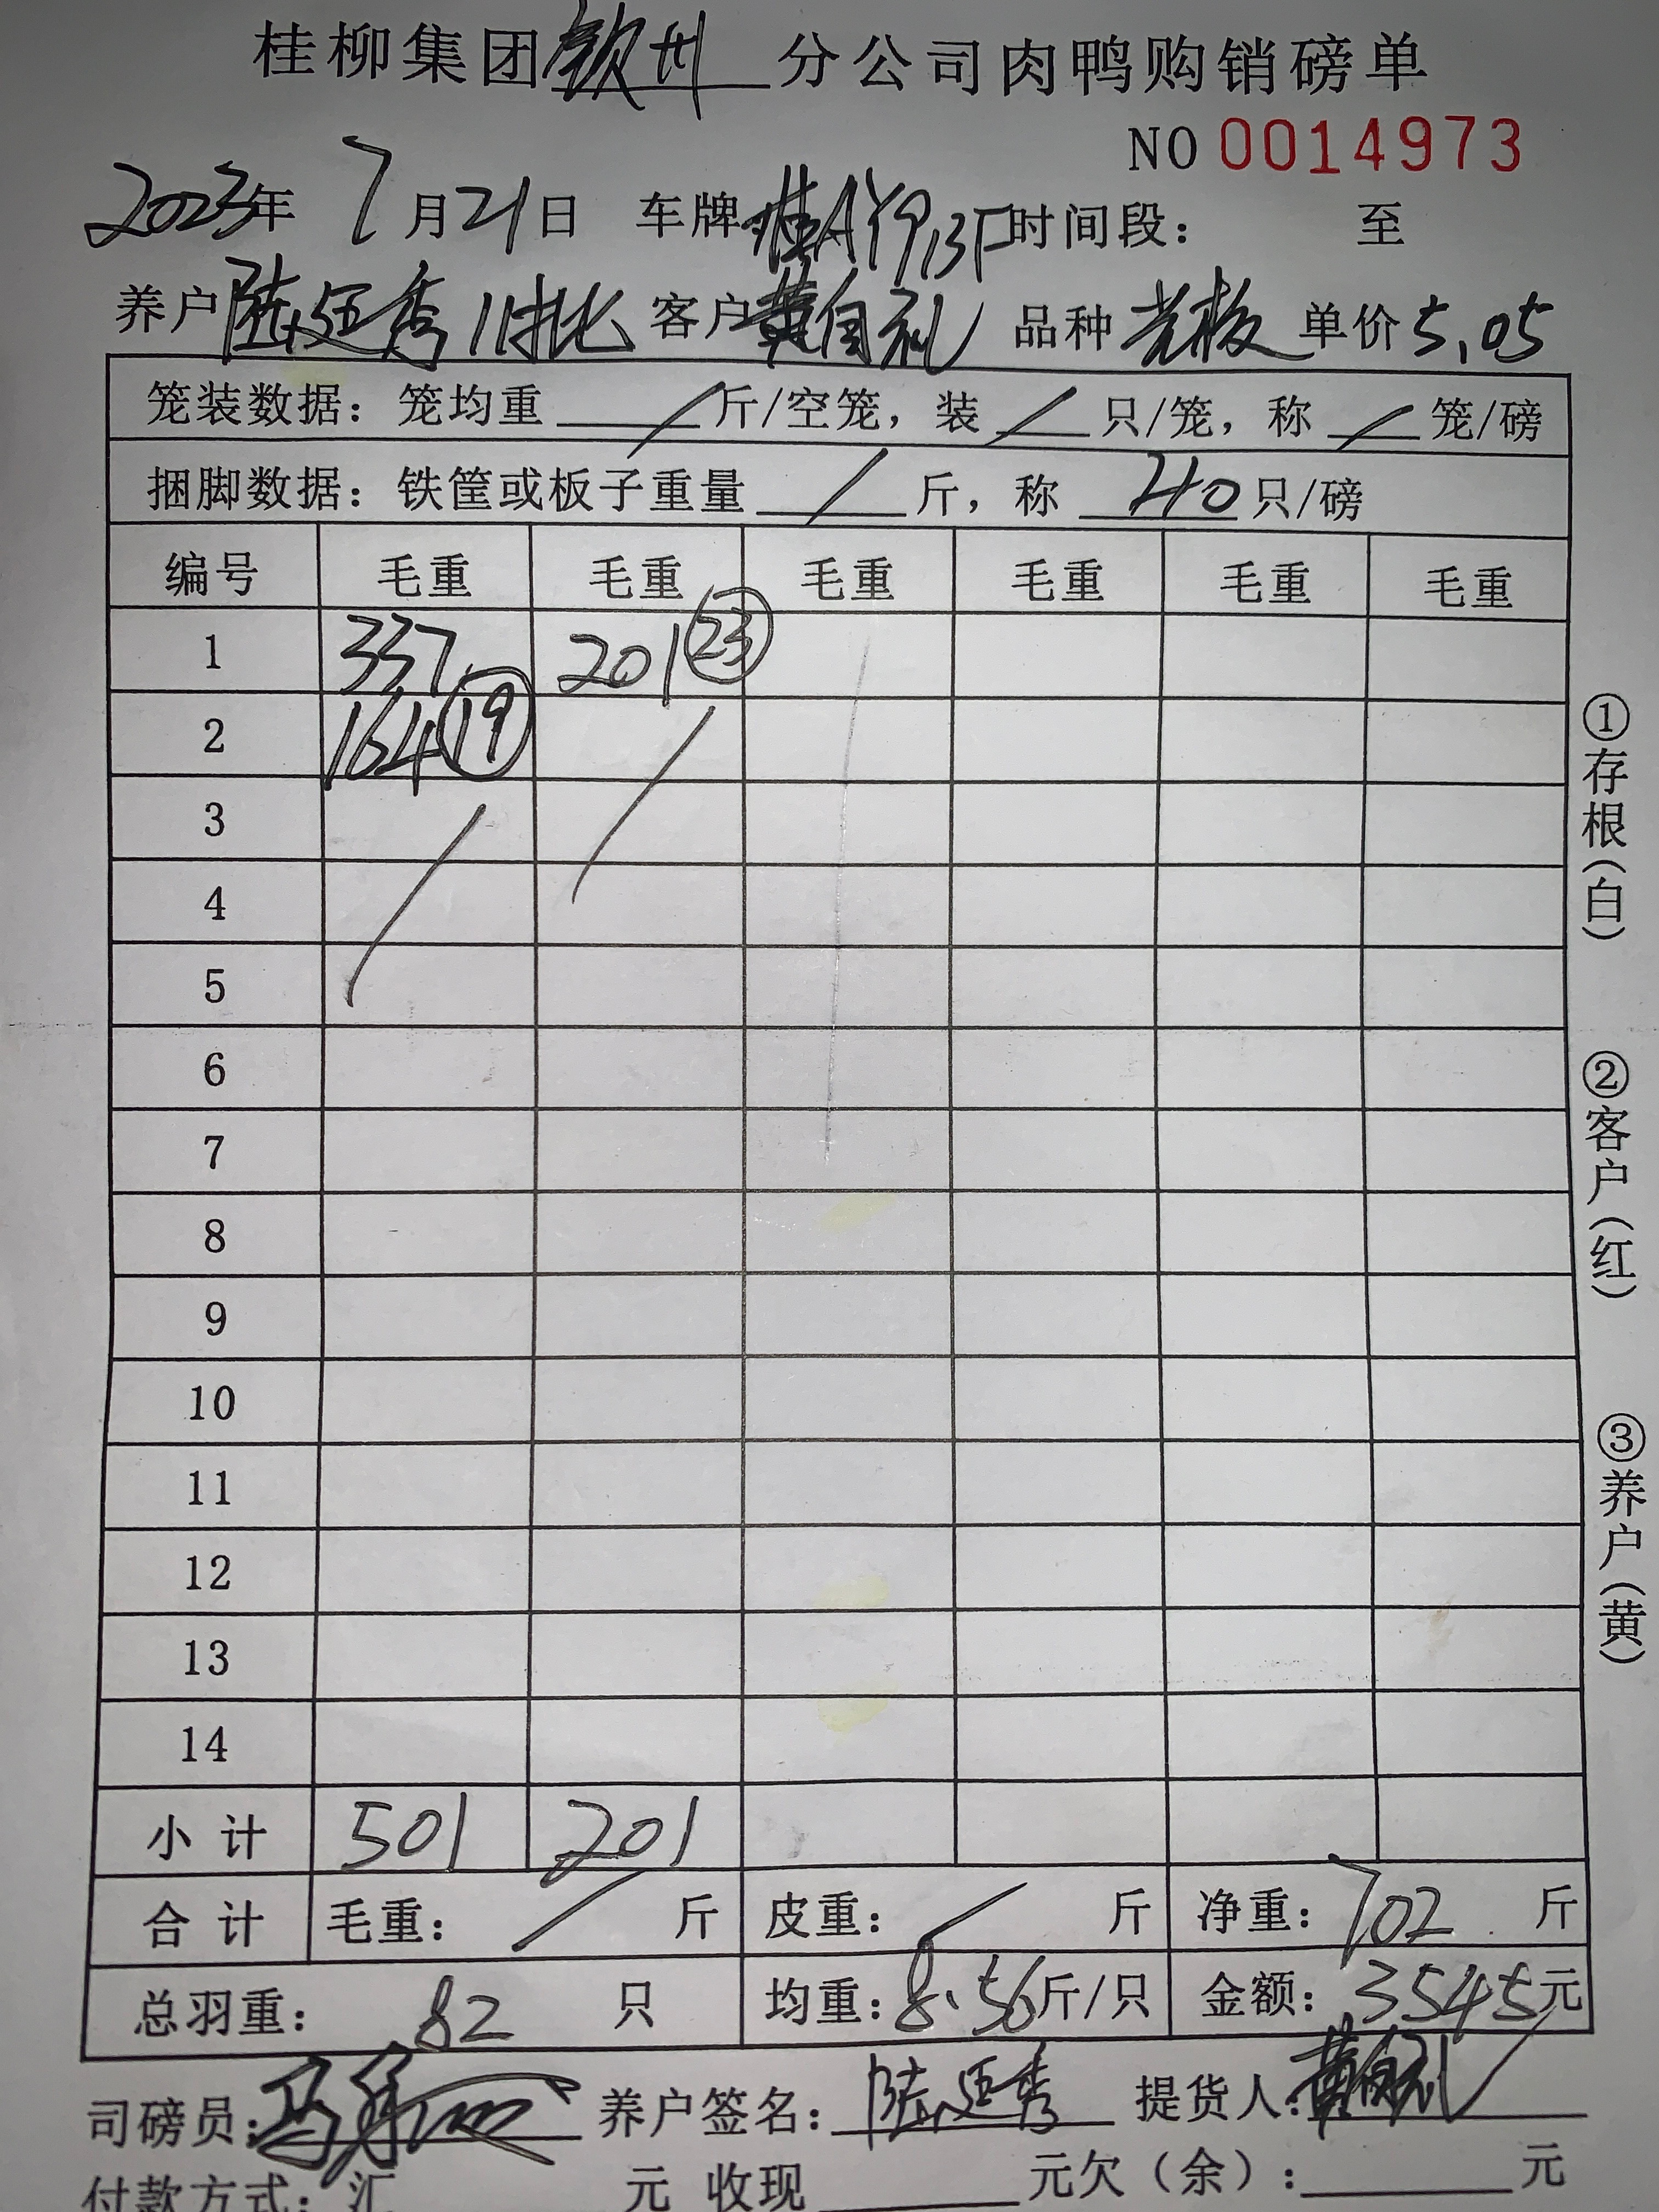 桂柳集团钦州分公司肉鸭购销磅单
NO 0014973
2023年 7月21日 车牌桂AY913F时间段： 至
养户陆廷秀11批 客户黄自礼 品种老板 单价5.05
笼装数据：笼均重 / 斤/空笼，装 / 只/笼，称 / 笼/磅
捆脚数据：铁筐或板子重量 / 斤，称 40 只/磅
编号 毛重 毛重 毛重 毛重 毛重 毛重
1 337 201 23
2 164 19
3
4
5
6
7
8
9
10
11
12
13
14
小计 501 201
合计 毛重： / 斤 皮重： / 斤 净重：702 斤
总羽重： 82 只 均重：8.56斤/只 金额：3545元
司磅员： 养户签名：陆廷秀 提货人：黄自礼
付款方式：汇 元 收现 元欠（余）： 元
①存根（白）
②客户（红）
③养户（黄）